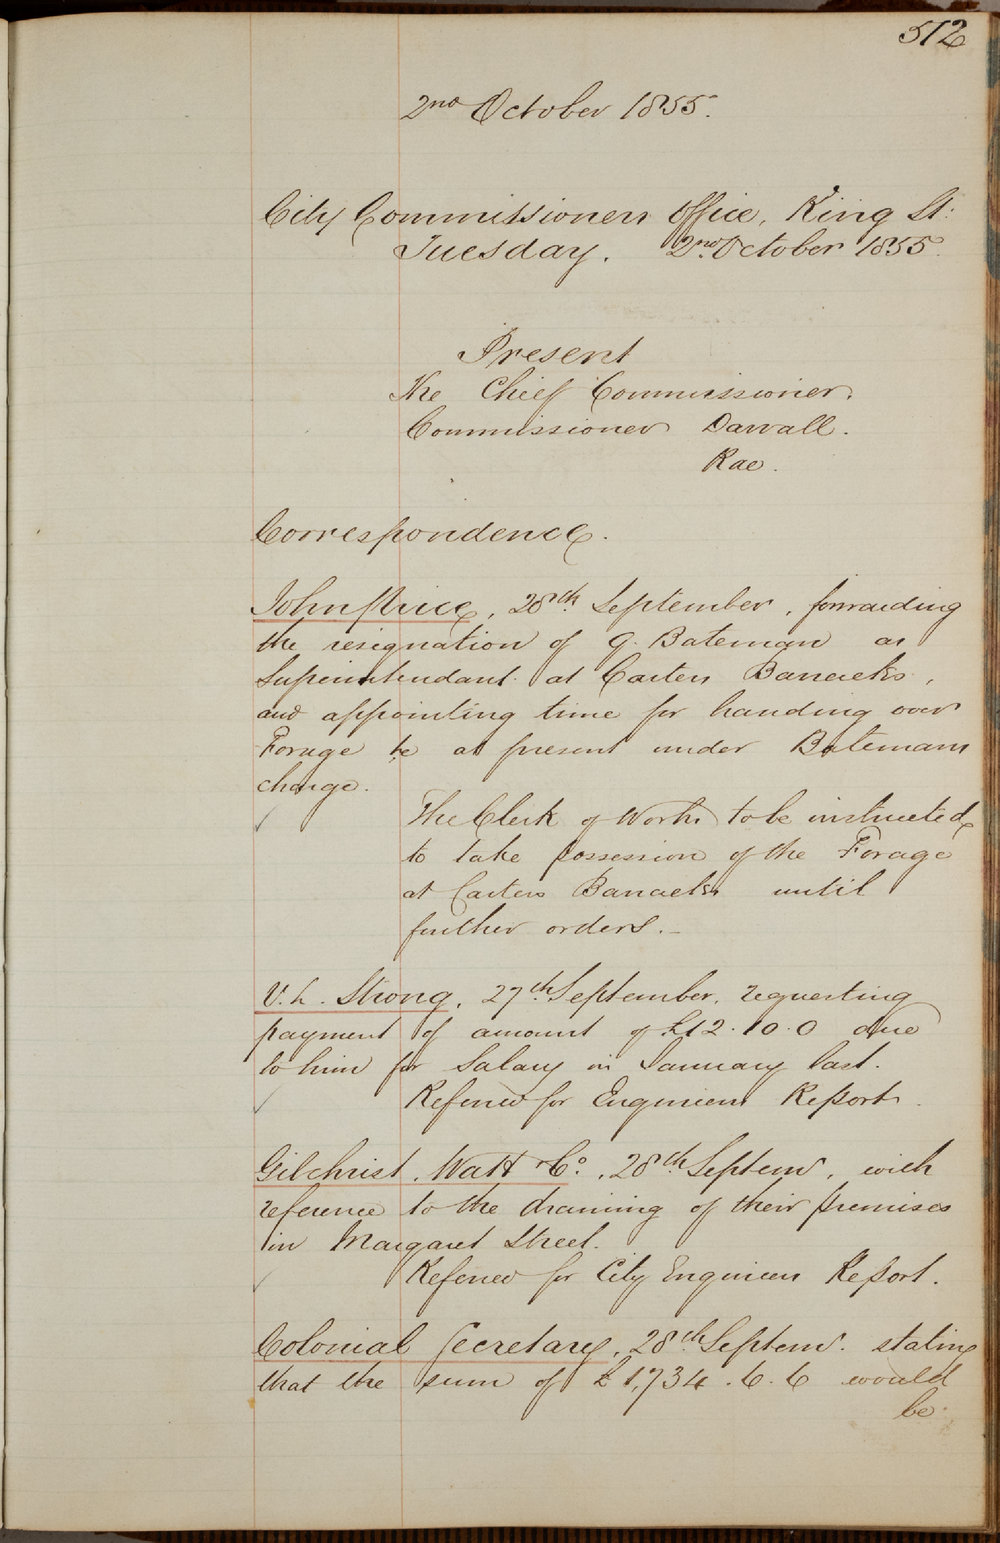 512
2nd October 1855.
City Commissioners Office, King St:
Tuesday. 2nd October 1855.
Present
The Chief Commissioner.
Commissioner Darvall.
Rae.
Correspondence.
John Price, 28th September, forwarding
the resignation of G. Bateman as
Superintendant at Carters Barracks,
and appointing time for handing over
Forage &c at present under Batemans
charge.
The Clerk of Works to be instructed
to take possession of the Forage
at Carters Barracks until
further orders.
V. L. Strong, 27th September, requesting
payment of amount of £12.10.0 due
to him for Salary in January last.
Referred for Engineers Report.
Gilchrist, Watt & Co., 28th Septemr, with
reference to the draining of their premises
in Margaret Street.
Referred for City Engineers Report.
Colonial Secretary, 28th Septemr. stating
that the sum of £1,734.6.6 would
be